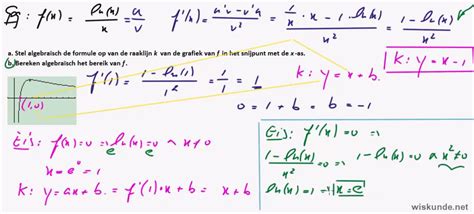 f(x) = ln(x)/x = u/v   f'(x) = (u'v - v'u)/v² = (1/x · x - 1 · ln(x))/x² = (1 - ln(x))/x²
a. Stel algebraisch de formule op van de raaklijn k van de grafiek van f in het snijpunt met de x-as.
b. Bereken algebraisch het bereik van f.
k: y = x - 1
(1,0)
f'(1) = (1 - ln(1))/1² = 1/1 = 1
k: y = x + b
0 = 1 + b ⇒ b = -1
Eis: f(x) = 0 ⇒ ln(x) = 0 ∧ x ≠ 0
e e
x = e⁰ = 1
k: y = ax + b = f'(1) · x + b = x + b
Eis: f'(x) = 0 ⇒
(1 - ln(x))/x² = 0 ⇒ 1 - ln(x) = 0 ∧ x² ≠ 0
ln(x) = 1 ⇒ x = e
wiskunde.net